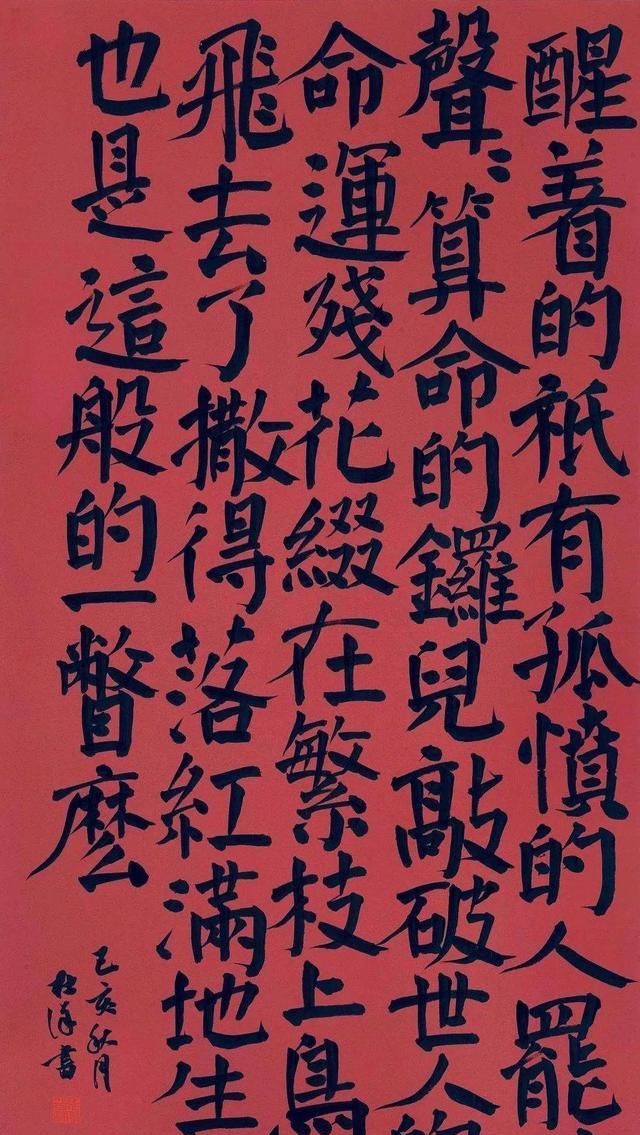 醒着的祇有孤憤的人罷
聲〻算命的鑼兒敲破世人的
命運殘花綴在繁枝上鳥
飛去了撒得落紅滿地生
也是這般的一瞥麼
己亥秋月
杜書